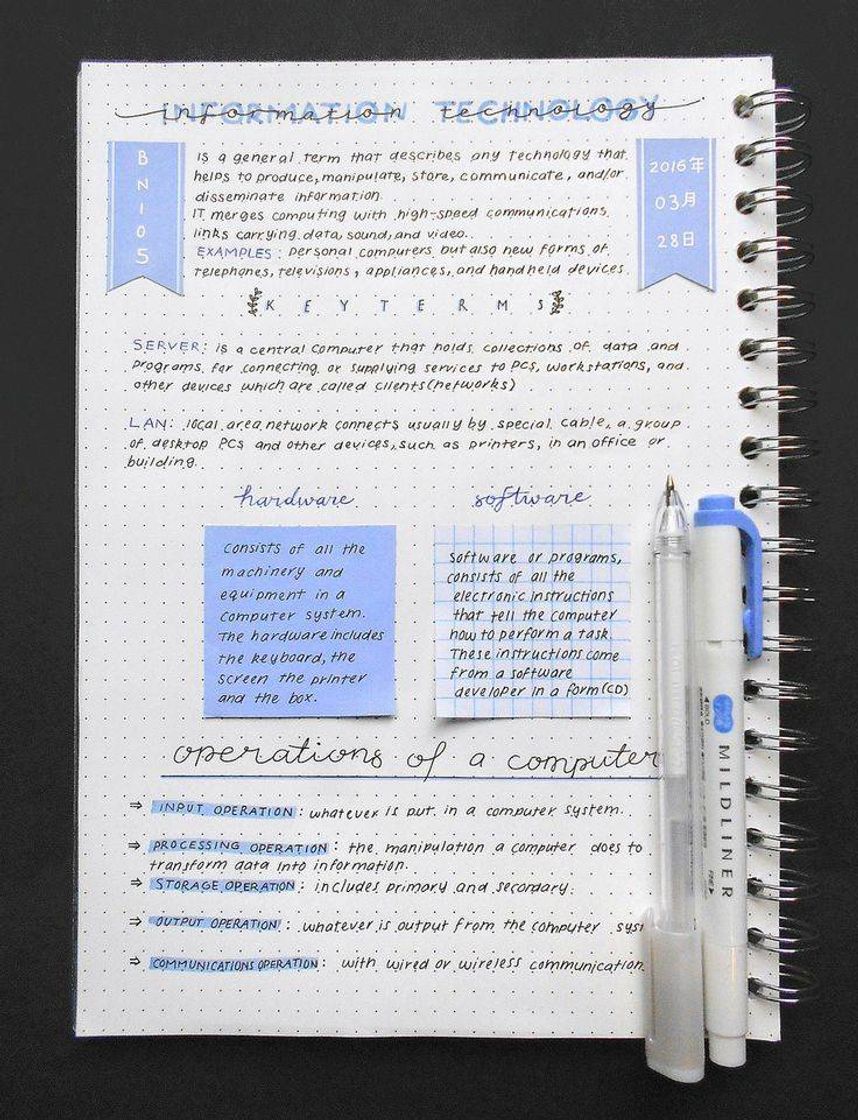 INFORMATION TECHNOLOGY
information technology
BN105
is a general term that describes any technology that
helps to produce, manipulate, store, communicate, and/or
disseminate information.
IT merges computing with high-speed communications
links carrying data, sound, and video.
EXAMPLES: personal computers but also new forms of
telephones, televisions, appliances, and handheld devices.
2016年
03月
28日
KEY TERMS
SERVER: is a central computer that holds collections of data and
programs for connecting or supplying services to PCs, workstations, and
other devices which are called clients (networks)
LAN: local area network connects usually by special cable, a group
of desktop PCs and other devices, such as printers, in an office or
building.
hardware
consists of all the
machinery and
equipment in a
computer system.
The hardware includes
the keyboard, the
screen the printer
and the box.
software
software or programs,
consists of all the
electronic instructions
that tell the computer
how to perform a task.
These instructions come
from a software
developer in a form (CD)
operations of a computer
⇒ INPUT OPERATION: whatever is put in a computer system.
⇒ PROCESSING OPERATION: the manipulation a computer does to
transform data into information.
⇒ STORAGE OPERATION: includes primary and secondary.
⇒ OUTPUT OPERATION: whatever is output from the computer syst
⇒ COMMUNICATIONS OPERATION: with wired or wireless communication
BOLD
MILDLINER